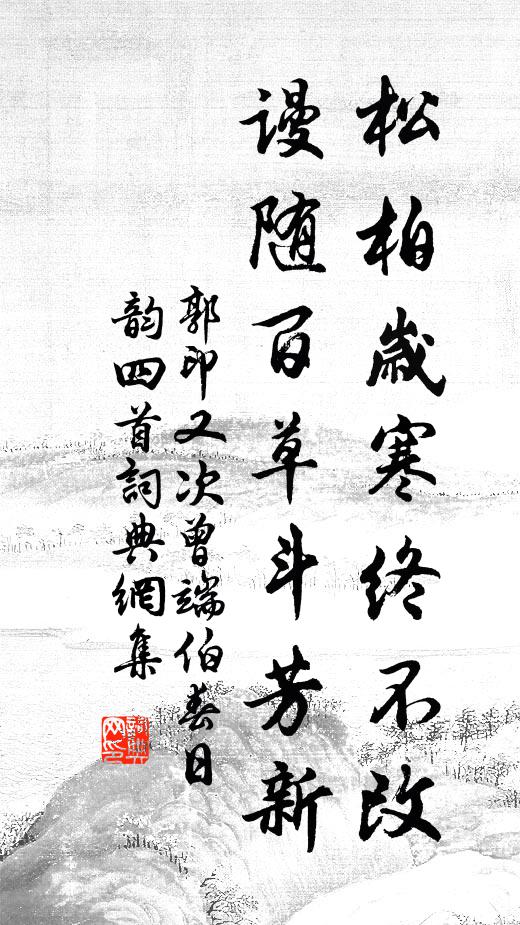 松柏歲寒終不改
謾随百草斗芳新
郭印又次曾端伯春日
韵四首詞典網集
詞典網印